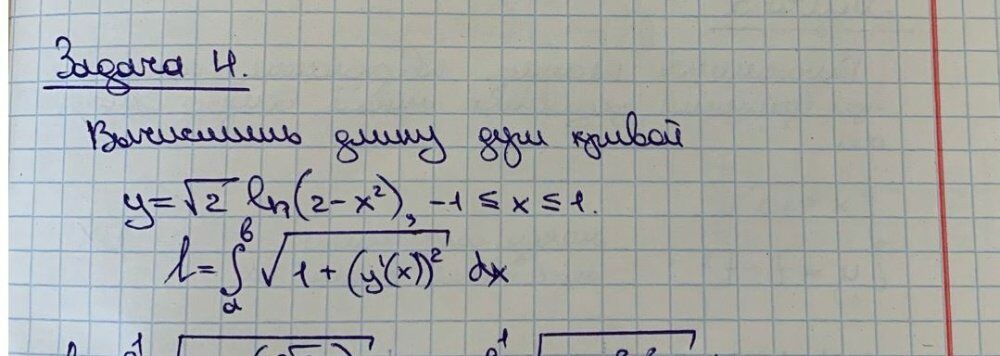 Задача 4.
Вычислить длину дуги кривой
y = √2 ln(2 - x²), -1 ≤ x ≤ 1.
l = ∫ₐᵇ √(1 + (y'(x))²) dx